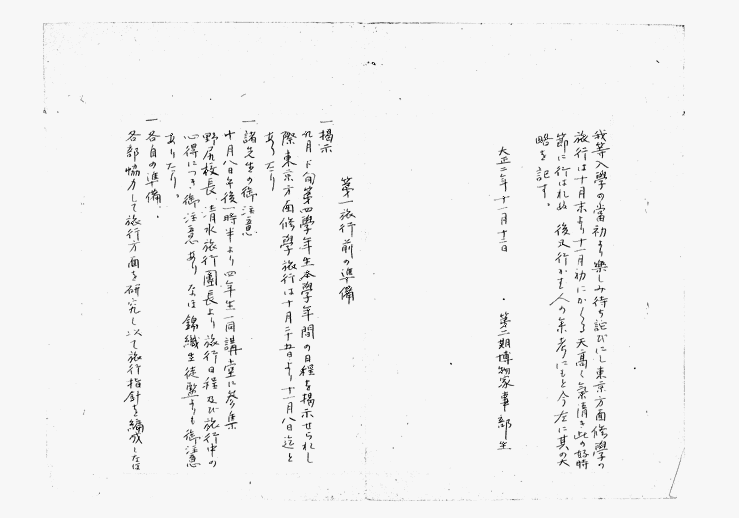 我等入學の當初より樂しみ待ち詫びにし東京方面修學の
旅行は十月末より十一月初にかゝる天高く氣清き此の好時
節に行はれぬ 後又行かむ人の参考にもと今左に其の大
略を記す。
大正二年十一月十二日 第二期博物家事部生
第一旅行前の準備
一揭示
九月下旬第四學年生本學年間の日程を揭示せられし
際東京方面修學旅行は十月二十五日より十一月八日迄と
ありたり
一諸先生の御注意
十月八日午後一時半より四年生一同講堂に參集
野尻校長 清水旅行團長より旅行日程及び旅行中の
心得につき御注意あり なほ錦織生徒監よりも御注意
ありたり。
一各自の準備。
各部協力して旅行方面を研究し以て旅行指針を編成しなほ